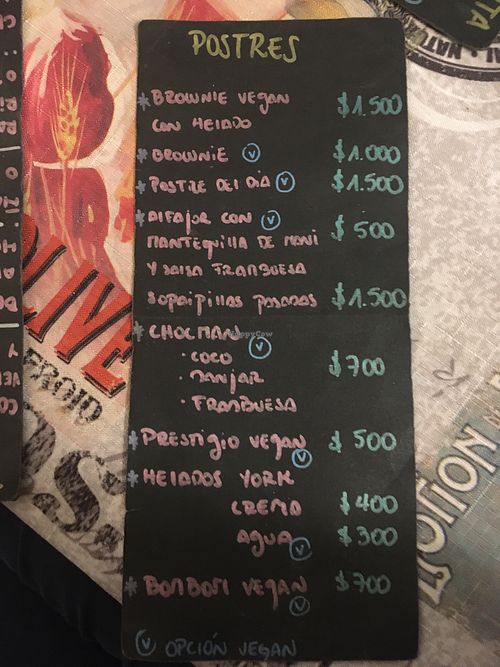 POSTRES
* BROWNIE VEGAN $1.500
CON HELADO
* BROWNIE Ⓥ $1.000
* POSTRE DEL DIA Ⓥ $1.500
* ALFAJOR CON Ⓥ $500
MANTEQUILLA DE MANI
Y SALSA FRAMBUESA
SOPAIPILLAS PASADAS $1.500
* CHOCMAN Ⓥ $700
· COCO
· MANJAR
· FRAMBUESA
* PRESTIGIO VEGAN Ⓥ $500
* HELADOS YORK
CREMA $400
AGUA Ⓥ $300
* BOMBOM VEGAN Ⓥ $700
Ⓥ OPCIÓN VEGAN
HappyCow
LIVE